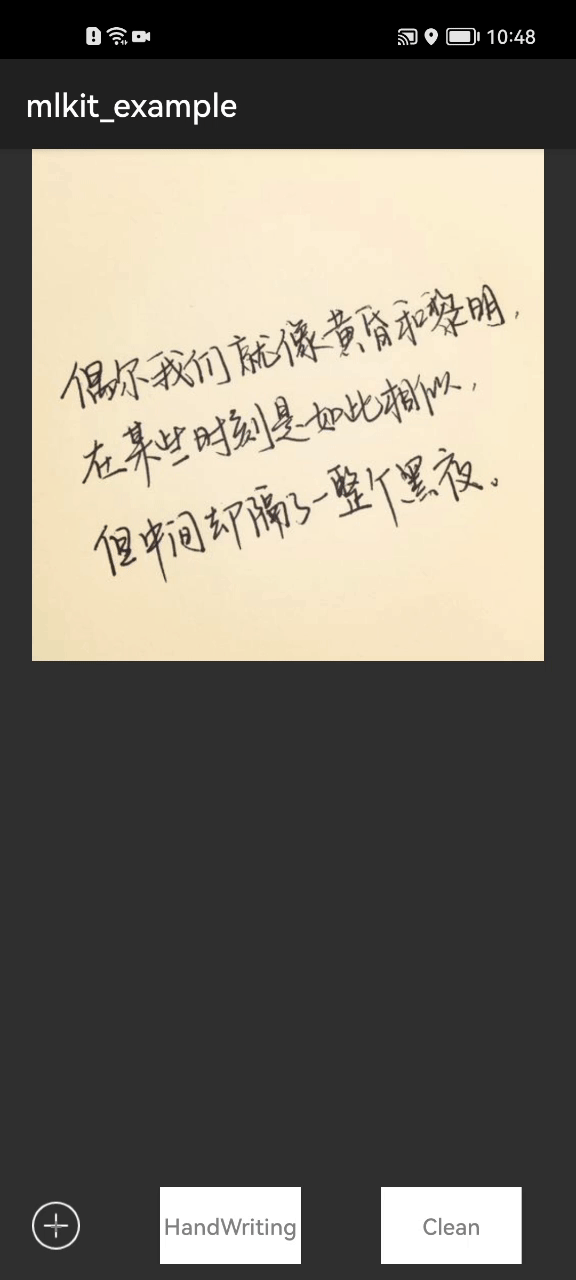 10:48
mlkit_example
偶尔我们就像黄昏和黎明，
在某些时刻是如此相似，
但中间却隔了一整个黑夜。
HandWriting
Clean